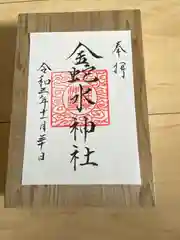 奉拝
金蛇水神社
令和五年十一月三十日